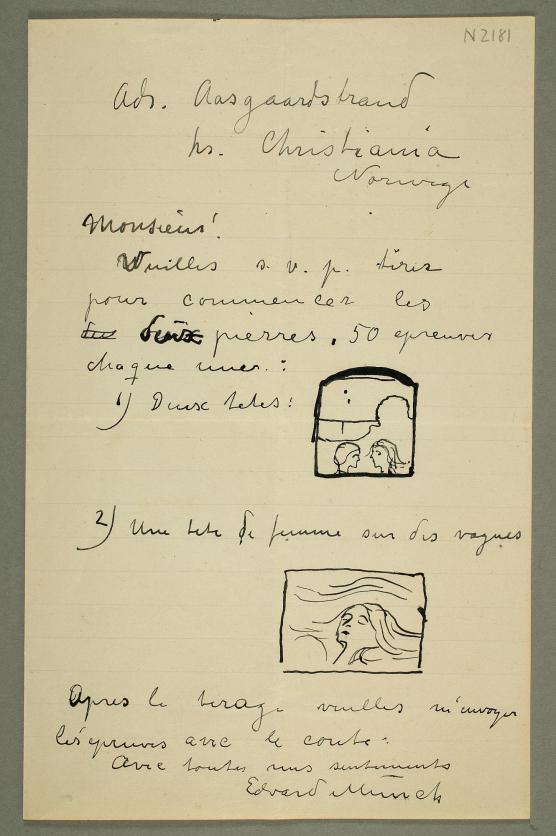 N2181
Ads. Aasgaardstrand
pr. Christiania
Norwege
Monsieur!
Vuilles s. v. p. tirez
pour commencer les
deux pierres, 50 epreuves
chaque unes. :
1) Deux tetes :
2) Une tete de femme sur des vagues
Apres le tirage vuilles m'envoyer
les épreuves avec le conte :
Avec toutes mes sentiments
Edvard Munch